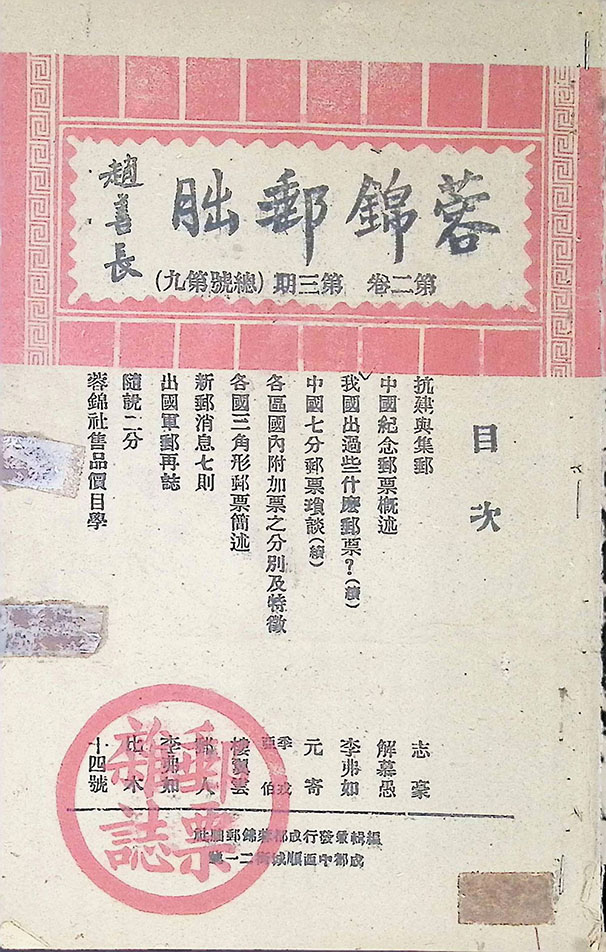 蓉錦郵朏
趙善長
第二卷 第三期(總號第九)
目次
抗建與集郵 志豪
中國紀念郵票概述 解慕愚
我國出過些什麽郵票?(續) 李弗如
中國七分郵票瑣談(續) 元寄
各區國內附加票之分別及特徵
各國三角形郵票簡述 樓翼雲
新郵消息七則 人
出國軍郵再誌 李弗如
隨說二分 比木
蓉錦社售品價目學 十四號
編輯兼發行成都蓉錦郵朏社
成都中西順城街二一號
郵票雜誌